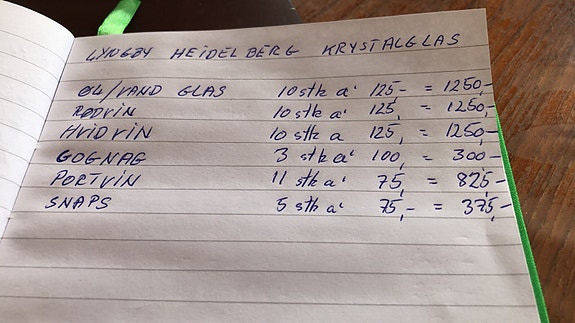 LYNGBY HEIDELBERG KRYSTALGLAS
ØL/VAND GLAS 10 stk a' 125,- = 1250,-
RØDVIN 10 stk a' 125, = 1250,-
HVIDVIN 10 stk a' 125, = 1250,-
GOGNAG 3 stk a' 100, = 300-
PORTVIN 11 stk a' 75, = 825,-
SNAPS 5 stk a' 75,- = 375,-